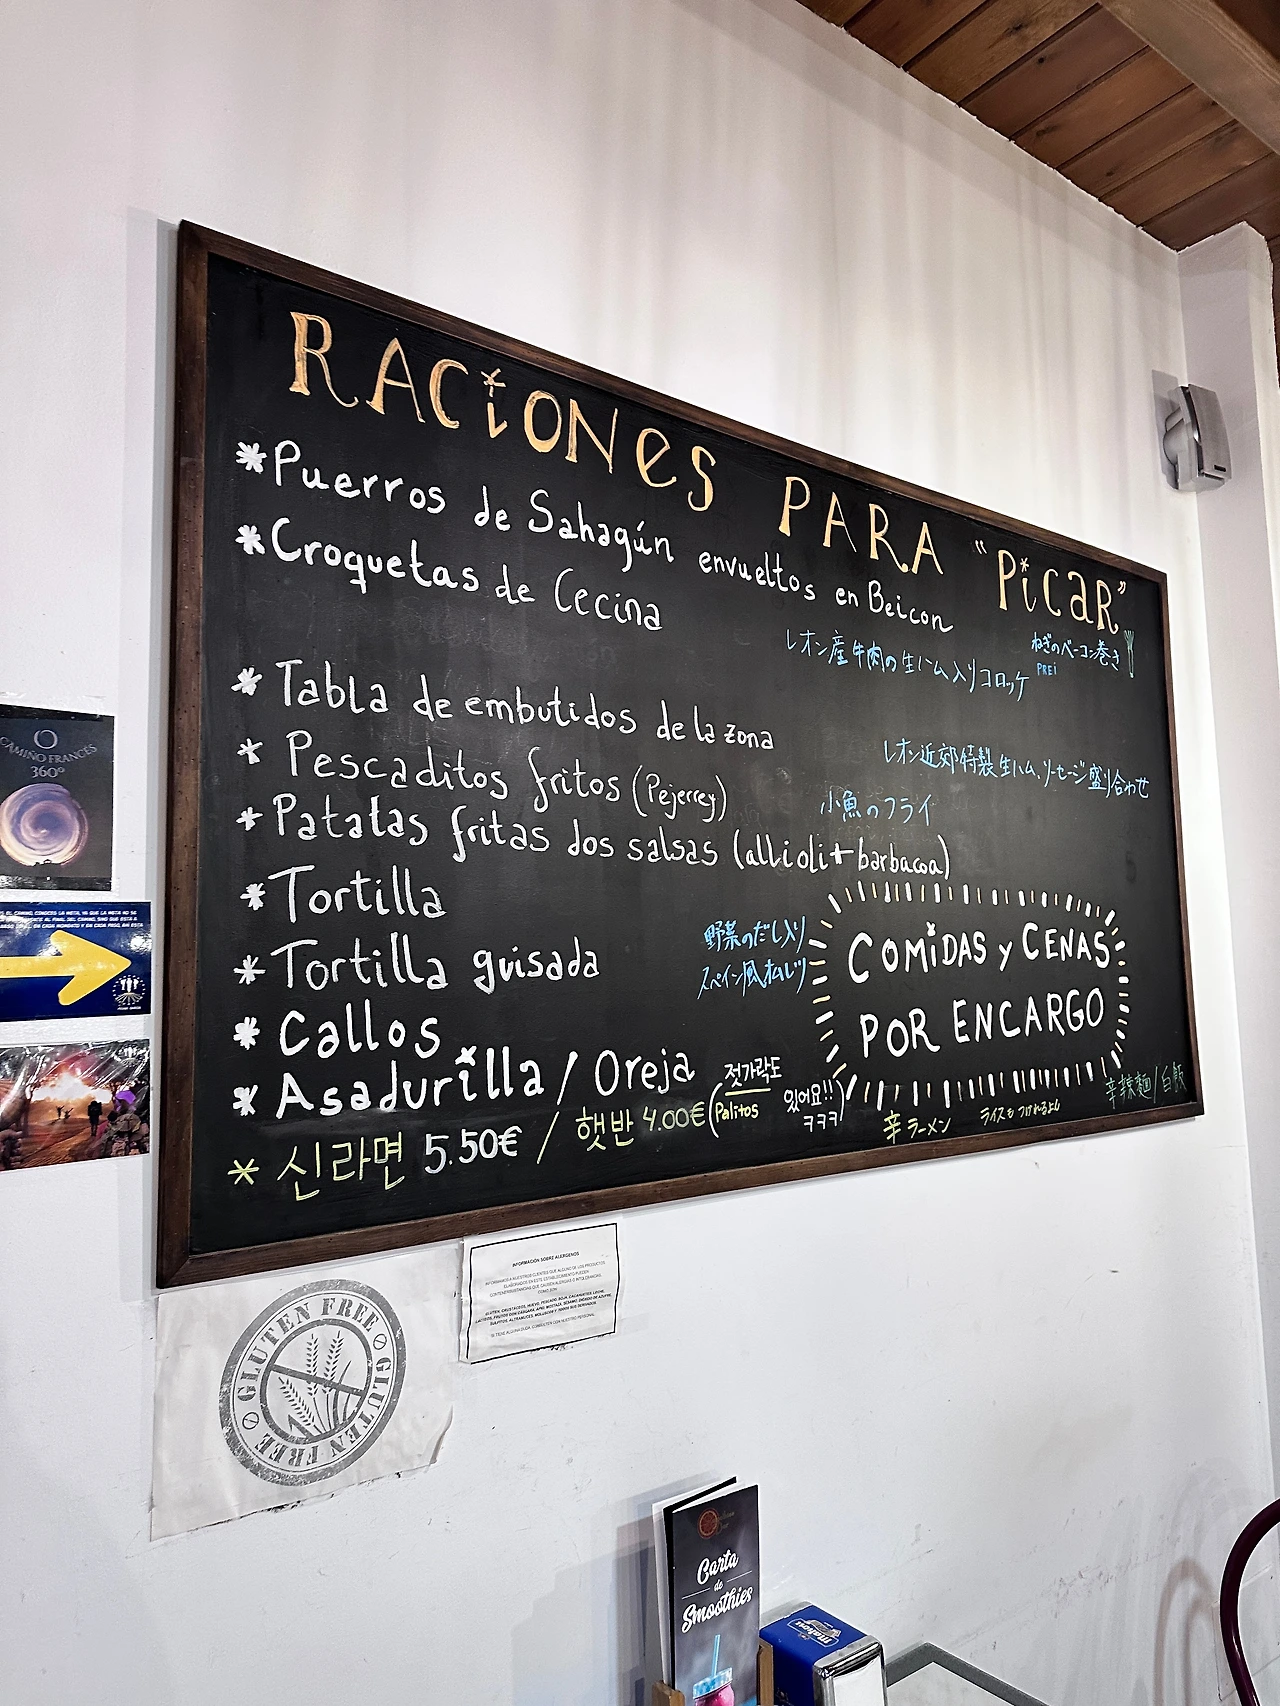 RACiONes PARA "PicaR"
*Puerros de Sahagún envueltos en Beicon
ねぎのベーコン巻き
PREi
*Croquetas de Cecina
レオン産牛肉の生ハム入りコロッケ
*Tabla de embutidos de la zona
レオン近郊特製生ハム、ソーセージ盛り合わせ
* Pescaditos fritos (Pejerrey)
小魚のフライ
*Patatas fritas dos salsas (allioli+barbacoa)
*Tortilla
*Tortilla guisada
野菜のだし入り
スペイン風オムレツ
* Callos
* Asadurilla / Oreja
* 신라면 5.50€ / 햇반 4.00€ (젓가락도
Palitos
있어요!!
ㅋㅋㅋ)
辛ラーメン
ライスもつけれるよ
辛辣麵/白飯
COMiDAS y CENAS
POR ENCARGO
CAMIÑO FRANCÉS
360º
GLUTEN FREE
GLUTEN FREE
GLUTEN FREE
INFORMACIÓN SOBRE ALÉRGENOS
Carta
de
Smoothies
mahou